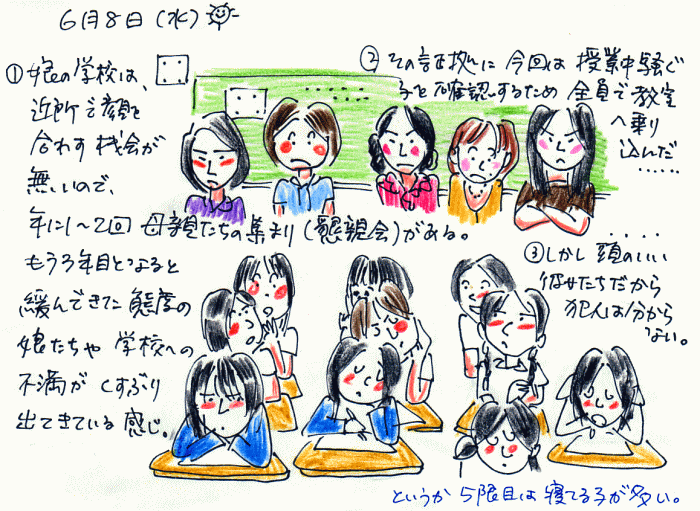 6月8日(水)
①娘の学校は、
近所で顔を
合わす機会が
無いので、
年に1〜2回 母親たちの集まり(懇親会)がある。
もう3年目となると
緩んできた態度の
娘たちや 学校への
不満が くすぶり
出てきている 感じ。
②その証拠に 今回は 授業中騒ぐ
子を 確認するため 全員で 教室
へ乗り
込んだ
......
....
③しかし 頭のいい
彼女たちだから
犯人は分から
ない。
というか 5限目は 寝てる子が多い。